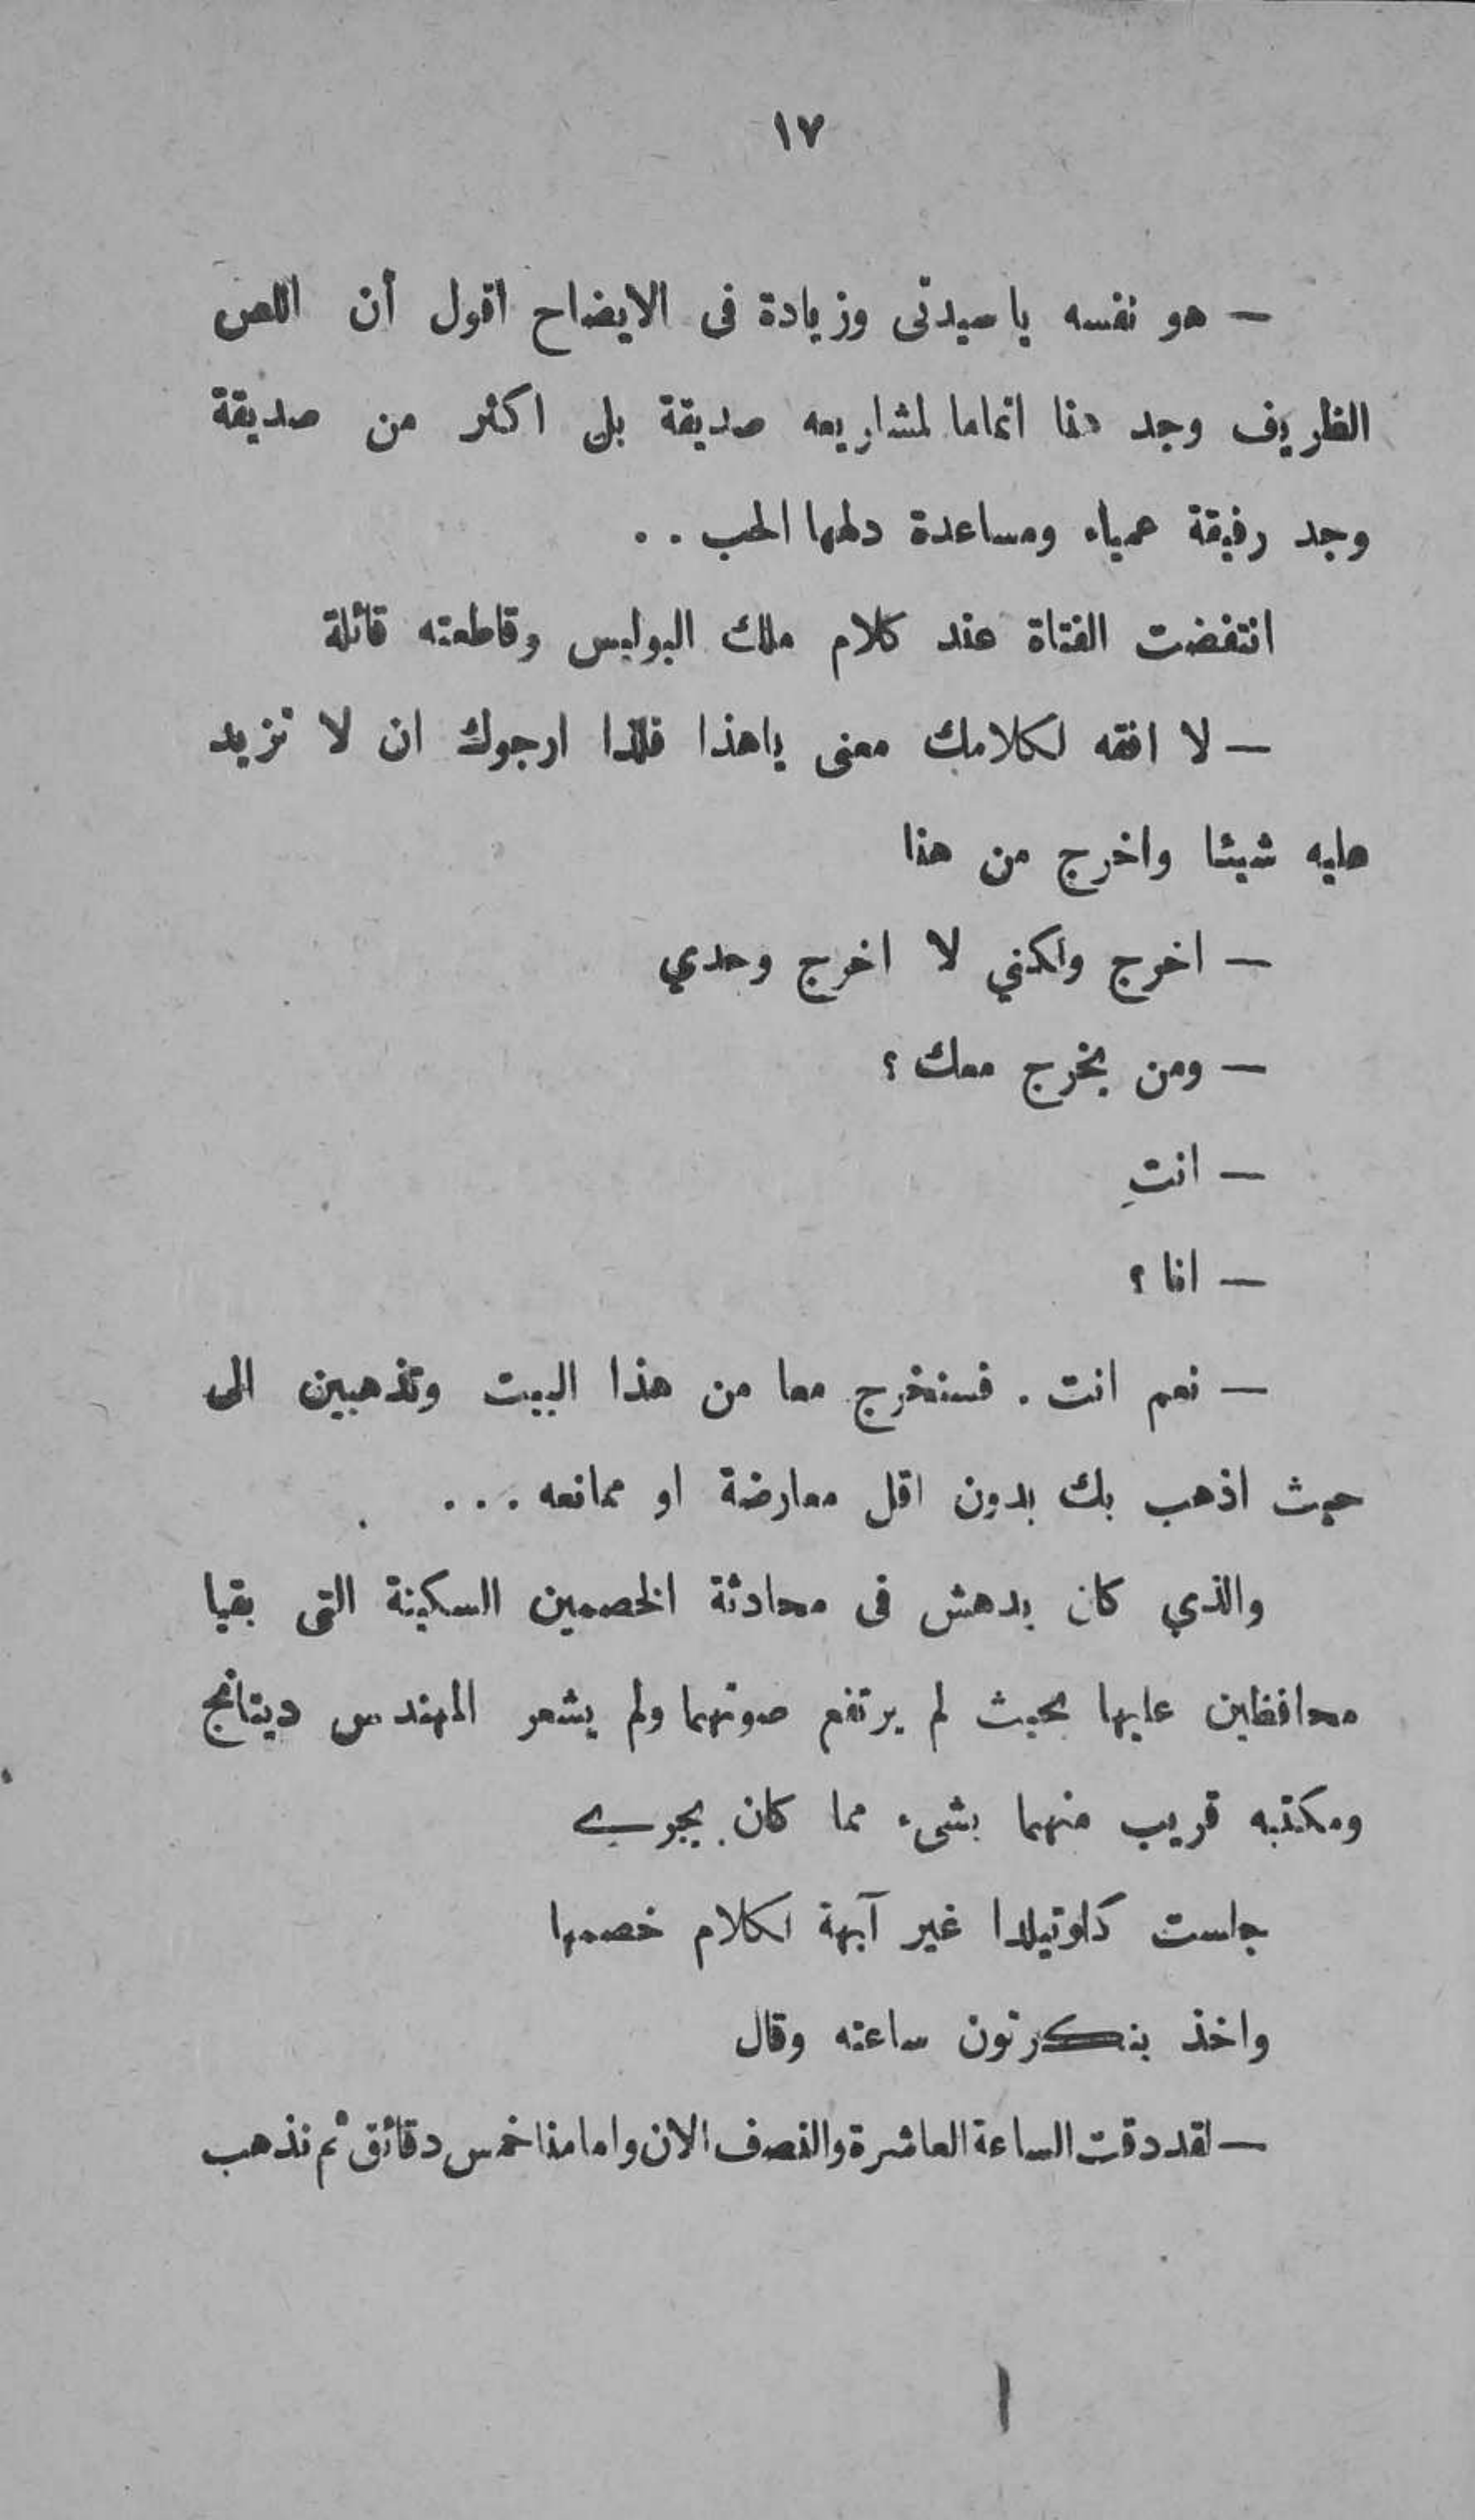 ١٧
— هو نفسه ياسيدتى وزيادة فى الايضاح اقول أن اللص
الظريف وجد هنا اتماما لمشاريعه صديقة بل اكثر من صديقة
وجد رفيقة عمياء ومساعدة دلهها الحب . .
انتفضت الفتاة عند كلام ملك البوليس وقاطعته قائلة
— لا افقه لكلامك معنى ياهذا فلذا ارجوك ان لا تزيد
عليه شيئا واخرج من هنا
— اخرج ولكني لا اخرج وحدي
— ومن يخرج معك ؟
— انتِ
— انا ؟
— نعم انت . فسنخرج معا من هذا البيت وتذهبين الى
حيث اذهب بك بدون اقل معارضة او ممانعه . . .
والذي كان يدهش فى محادثة الخصمين السكينة التى بقيا
محافظين عليها بحيث لم يرتفع صوتهما ولم يشعر المهندس ديتانج
ومكتبه قريب منهما بشىء مما كان يجرى
جلست كلوتيلدا غير آبهة لكلام خصمها
واخذ بنكرتون ساعته وقال
— لقد دقت الساعة العاشرة والنصف الان وامامنا خمس دقائق ثم نذهب
١